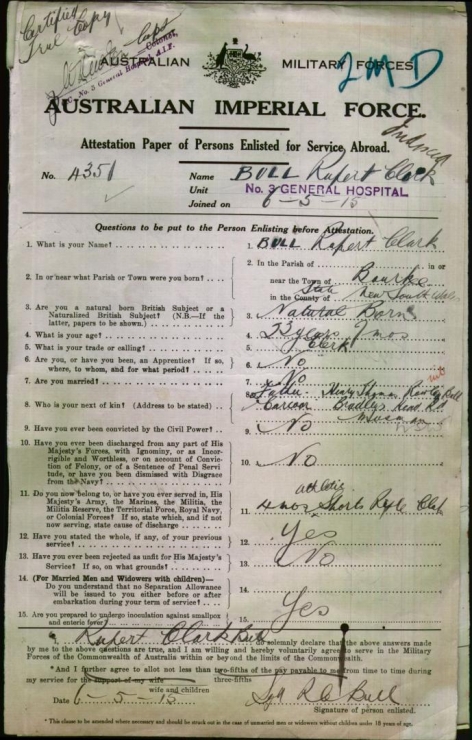 Certified
True Copy
Corps
Colonel,
No. 3 General Hospital A.I.F.
AUSTRALIAN MILITARY FORCES
2MD
AUSTRALIAN IMPERIAL FORCE.
Attestation Paper of Persons Enlisted for Service Abroad.
No. A351
Name BULL Rupert Clark
Unit No. 3 GENERAL HOSPITAL
Joined on 6-5-15
Questions to be put to the Person Enlisting before Attestation.
1. What is your Name? 1. BULL Rupert Clark
2. In or near what Parish or Town were you born? 2. In the Parish of in or
near the Town of Bourke
in the County of State New South Wales
3. Are you a natural born British Subject or a
Naturalized British Subject? (N.B.—If the
latter, papers to be shown.) 3. Natural Born
4. What is your age? 4. 23 years 7 mos
5. What is your trade or calling? 5. Clerk
6. Are you, or have you been, an Apprentice? If so,
where, to whom, and for what period? 6. No
7. Are you married? 7. No
8. Who is your next of kin? (Address to be stated) 8. Father Henry Bull
Bradleys Head Rd
Mosman
9. Have you ever been convicted by the Civil Power? 9. No
10. Have you ever been discharged from any part of His
Majesty's Forces, with Ignominy, or as Incor-
rigible and Worthless, or on account of Conviction
of Felony, or of a Sentence of Penal Servi-
tude, or have you been Dismissed with Disgrace
from the Navy? 10. No
11. Do you now belong to, or have you ever served in, His
Majesty's Army, the Marines, the Militia, the
Militia Reserve, the Territorial Force, Royal Navy,
or Colonial Forces? If so, state which, and if not
now serving, state cause of discharge 11. 4 mos Shorts Club
12. Have you stated the whole, if any, of your previous
service? 12. Yes
13. Have you ever been rejected as unfit for His Majesty's
Service? If so, on what grounds? 13. No
14. (For Married Men and Widowers with children)—
Do you understand that no Separation Allowance
will be issued to you either before or after
embarkation during your term of service? 14.
15. Are you prepared to undergo inoculation against smallpox
and enteric fever? 15. Yes
Rupert Clark Bull do solemnly declare that the above answers made
by me to the above questions are true, and I am willing and hereby voluntarily agree to serve in the Military
Forces of the Commonwealth of Australia within or beyond the limits of the Commonwealth.
*And I further agree to allot not less than two-fifths of the pay payable to me from time to time during
three-fifths
my service for the support of my wife
wife and children
Date 6-5-15 Sgd R C Bull
Signature of person enlisted.
* This clause to be amended where necessary and should be struck out in the case of unmarried men or widowers without children under 18 years of age.